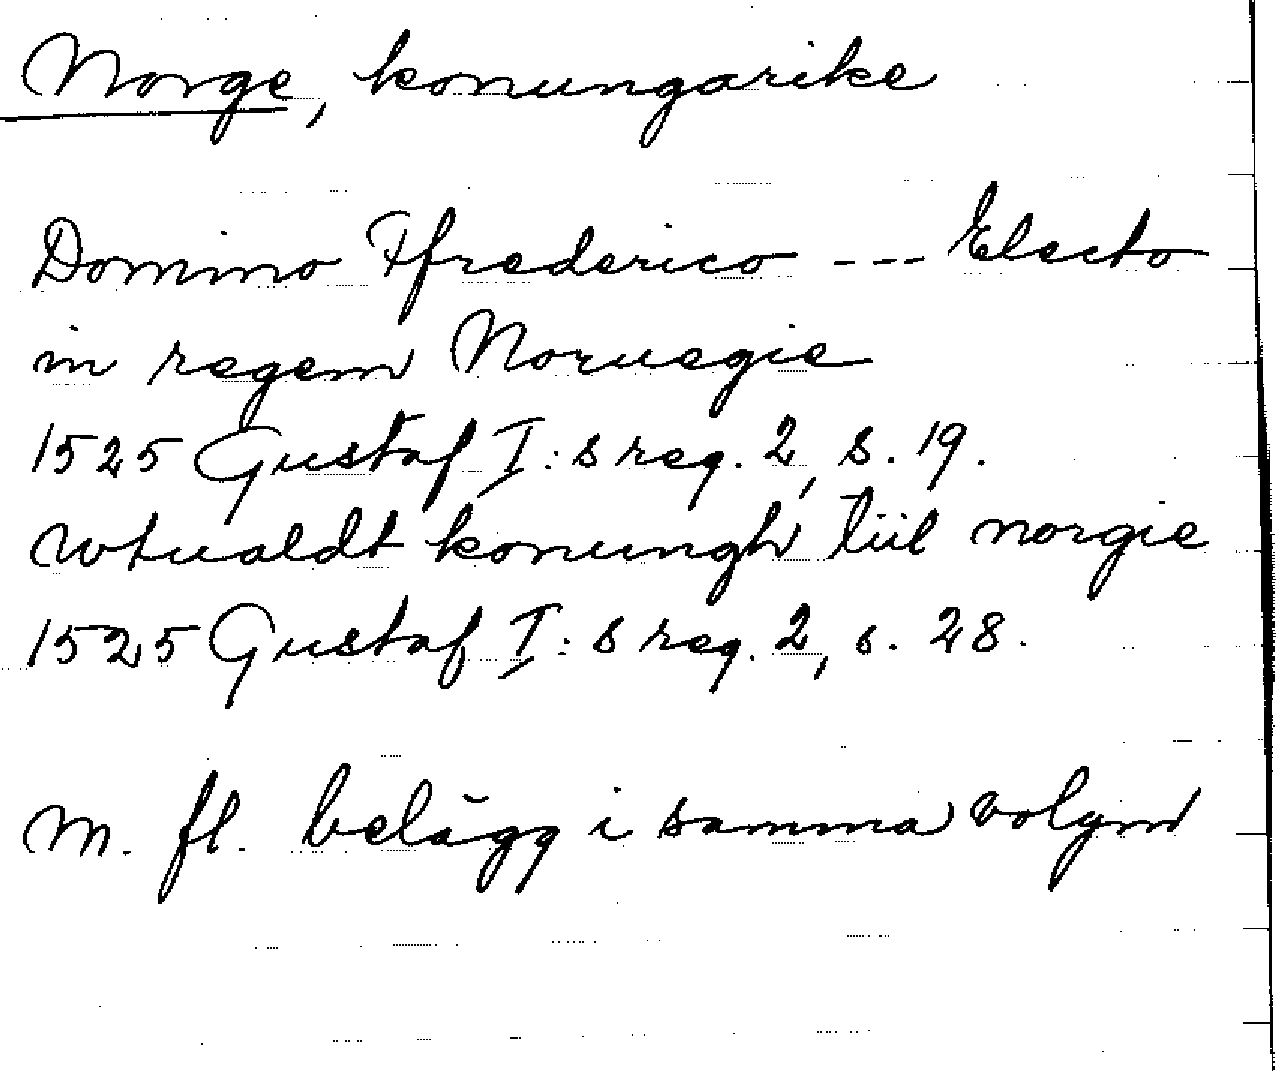 Norge, konungarike
Domino Ffrederico --- Electo
in regem Noruegie
1525 Gustaf I:s reg. 2, s. 19.
wtualdt konungh tiil norgie
1525 Gustaf I:s reg. 2, s. 28.
m. fl. belägg i samma volym